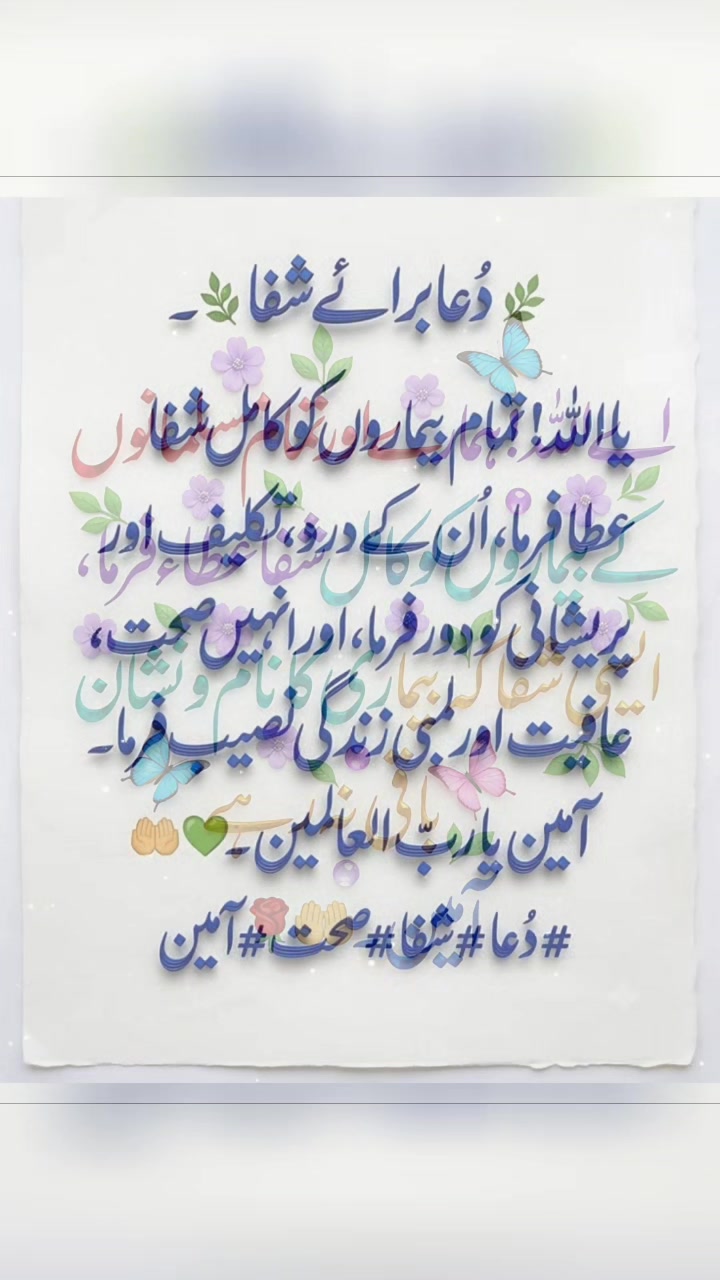 دُعا برائے شفا ۔
یا اللہ! تمام بیماروں کو کامل شفا
عطا فرما، اُن کے درد، تکلیف اور
پریشانی کو دور فرما، اور انہیں صحت،
عافیت اور لمبی زندگی نصیب فرما۔
آمین یا ربّ العالمین۔ 💚🤲
#دُعا #شفا #صحت #آمین
اے اللہ ہمارے اور تمام مسلمانوں
کے بیماروں کو کامل شفا عطاء فرما،
ایسی شفا کہ بیماری کا نام و نشان
باقی نہ رہے